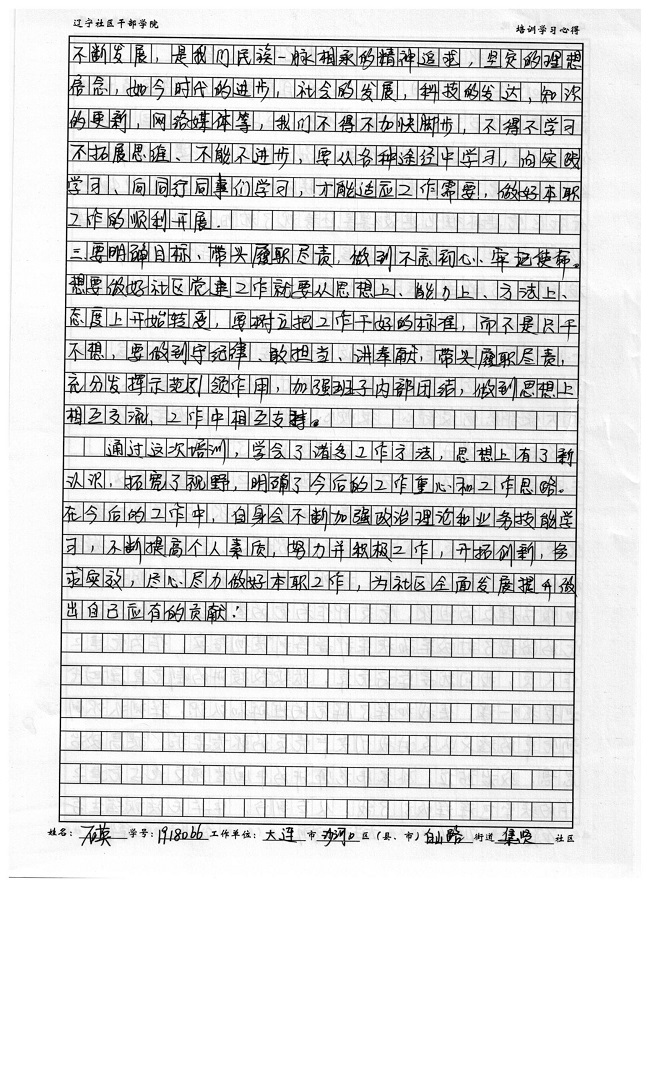 辽宁社区干部学院 培训学习心得
不断发展，是我们民族一脉相承的精神追求，坚定的理想
信念，如今时代的进步，社会的发展，科技的发达，知识
的更新，网络媒体等，我们不得不加快脚步，不得不学习
不拓展思维、不能不进步，要从各种途径中学习，向实践
学习、向同行同事们学习，才能适应工作需要，做好本职
工作的顺利开展．
三要明确目标、带头履职尽责，做到不忘初心、牢记使命。
想要做好社区党建工作就要从思想上、能力上、方法上、
态度上开始转变，要树立把工作干好的标准，而不是只干
不想，要做到守纪律、敢担当、讲奉献，带头履职尽责，
充分发挥示范引领作用，加强班子内部团结，做到思想上
相互交流，工作中相互支持。
通过这次培训，学会了诸多工作方法，思想上有了新
认识，拓宽了视野，明确了今后的工作重心和工作思路。
在今后的工作中，自身会不断加强政治理论和业务技能学
习，不断提高个人素质，努力并积极工作，开拓创新，务
求实效，尽心尽力做好本职工作，为社区全面发展提升做
出自己应有的贡献！
姓名：石英 学号：1918066 工作单位：大连市沙河口区（县、市）白山路街道集贤社区